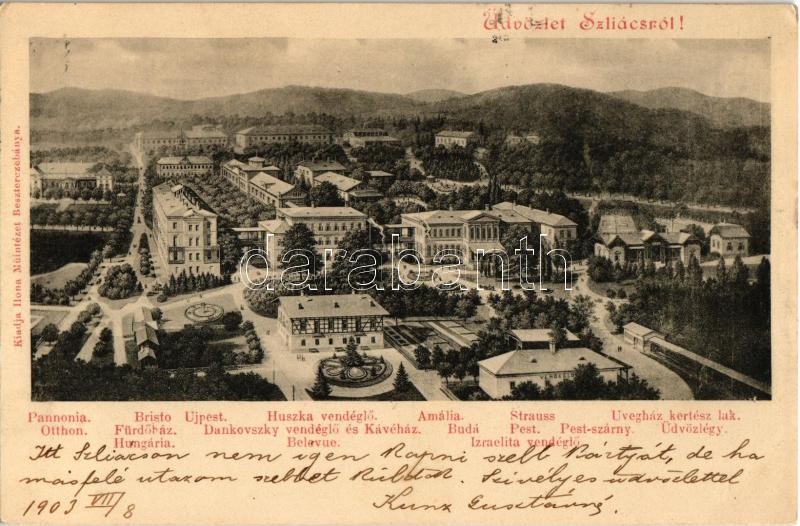 Üdvözlet Szliácsról!
Kiadja Ilona Műintézet Beszterczebánya.
darabanth.com
Pannonia. Bristo Ujpest. Huszka vendéglő. Amália. Strauss Uvegház kertész lak.
Otthon. Fürdőház. Dankovszky vendéglő és Kávéház. Budá Pest. Pest-szárny. Üdvözlégy.
Hungária. Belevue. Izraelita vendéglő.
Itt Szliacson nem igen Kapni szebb Kártyát, de ha
másfelé utazom szebbet Küldök. Szivélyes üdvözlettel
1903 VIII/8 Kunz Gusztávné